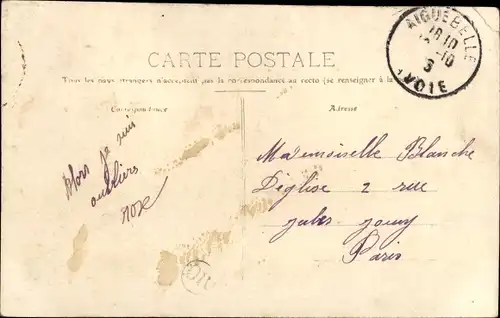 CARTE POSTALE
Tous les pays étrangers n'acceptent pas la correspondance au recto (se renseigner à la
Correspondance
Adresse
AIGUEBELLE
18 10
10
SAVOIE
Alors je suis
oubliers
rose
Mademoiselle Blanche
Déglise 2 rue
jules jouy
Paris